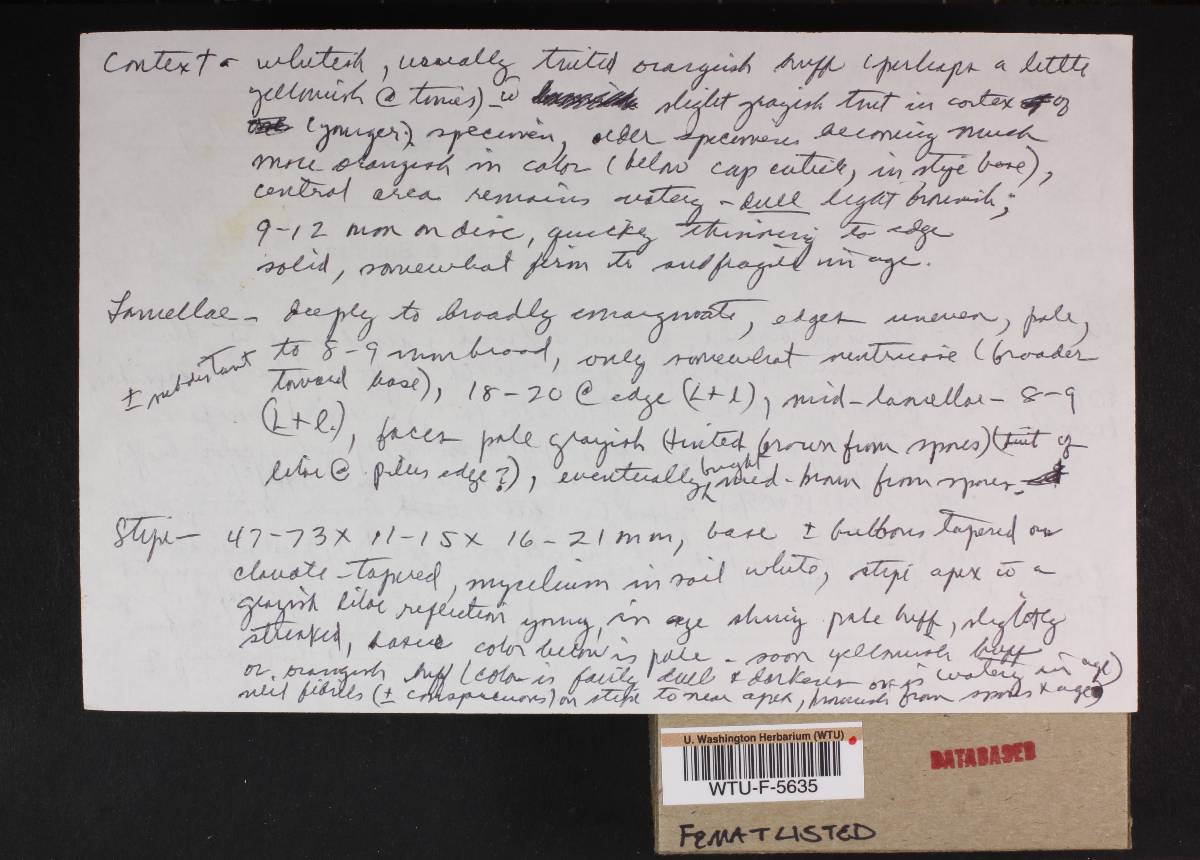 Context - whitish, usually tinted orangish buff (perhaps a little
yellowish @ times) - w slight grayish tint in cortex of
(younger) specimen, older specimens becoming much
more orangish in color (below cap cuticle, in stipe base),
central area remains watery - dull light brownish;
9-12 mm on disc, quickly thinning to edge
solid, somewhat firm to and fragile in age.
Lamellae - deeply to broadly emarginate, edges uneven, pale,
± subdistant
to 8-9 mm broad, only somewhat ventricose (broader
toward base), 18-20 @ edge (L+l), mid-lamellae - 8-9
(L+l.), faces pale grayish (tinted brown from spores) (tint of
lilac @ pileus edge?), eventually bright med-brown from spores.
Stipe - 47-73 x 11-15 x 16-21 mm, base ± bulbous tapered or
clavate-tapered, mycelium in soil white, stipe apex w a
grayish lilac reflection young, in age shiny pale buff, slightly
streaked, color below is pale - soon yellowish buff
or orangish buff (color is fairly dull & darkens or is watery in age)
veil fibrils (± conspicuous) on stipe to near apex, brownish from spores & age
U. Washington Herbarium (WTU)
WTU-F-5635
DATABASED
FEMAT LISTED